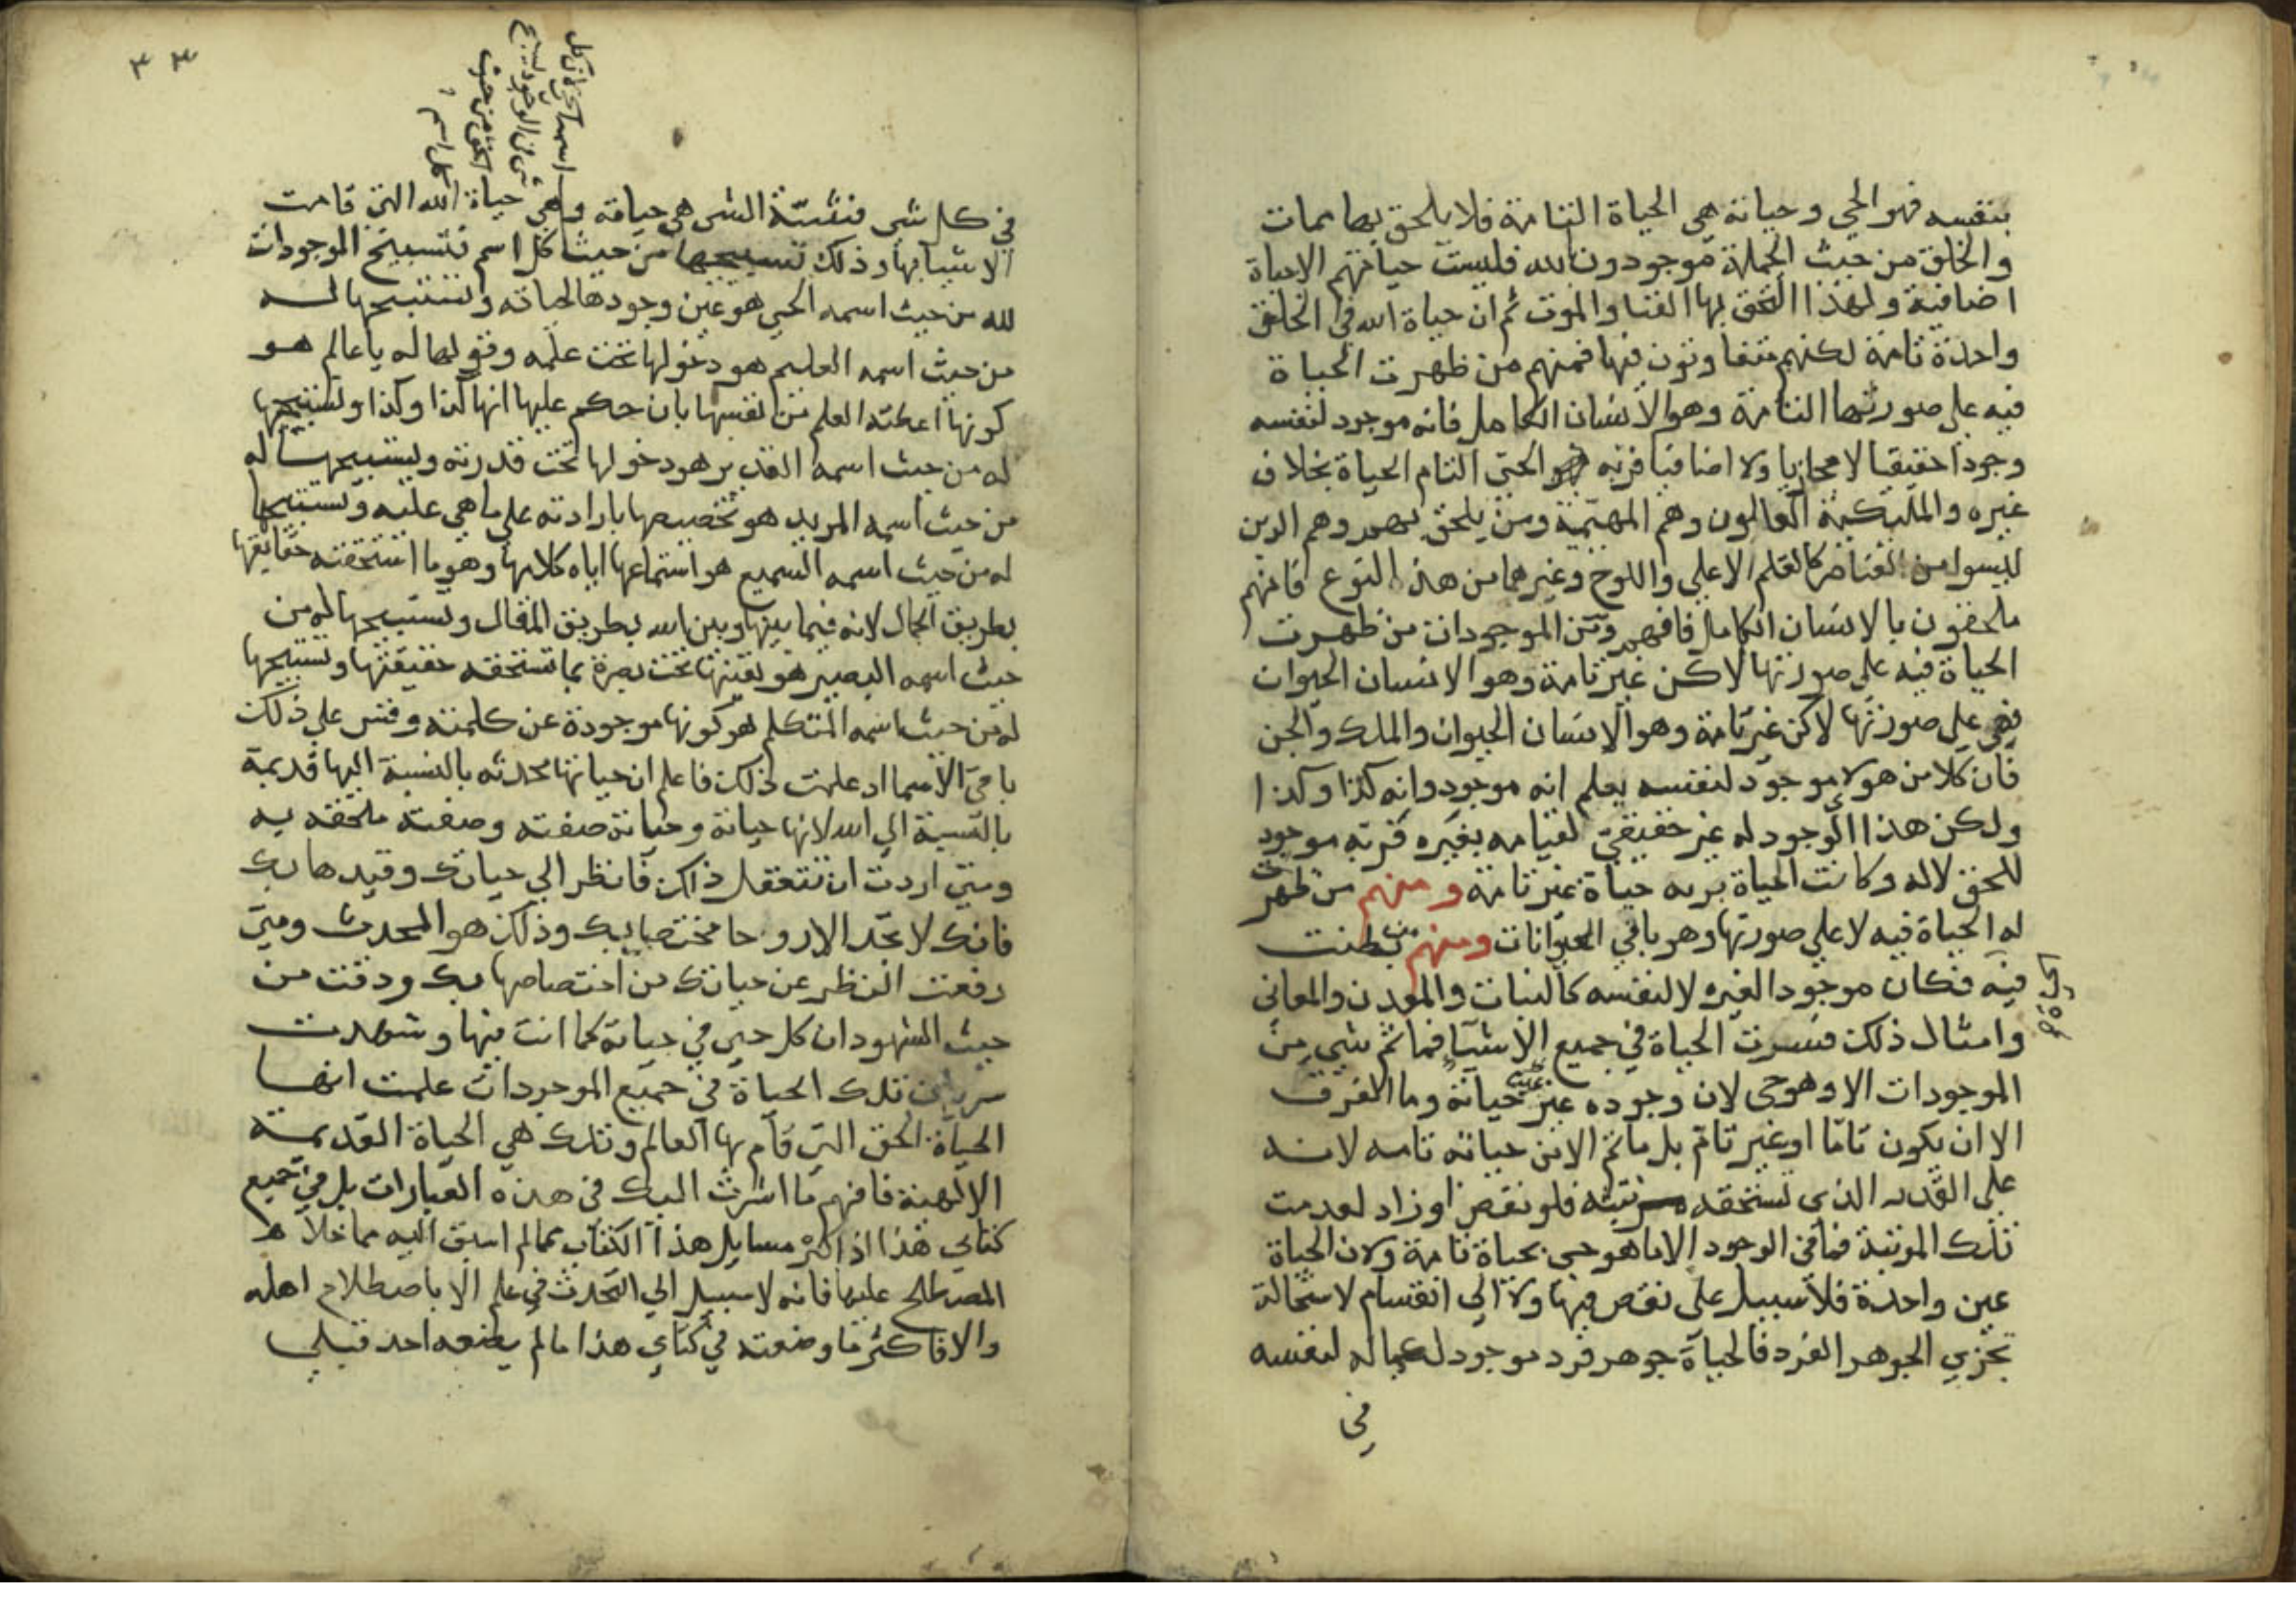 بنفسه فهو الحي وحياته هي الحياة التامة فلا يلحق بها ممات
والخلق من حيث الجملة موجودون لله فليست حياتهم الا حياة
اضافية ولهذا التحق بها الفنا والموت ثم ان حياة الله في الخلق
واحدة تامة لكنهم متفاوتون فيها فمنهم من ظهرت الحياة
فيه على صورتها التامة وهو الانسان الكامل فانه موجود لنفسه
وجودا حقيقيا لا مجازيا ولا اضافيا فربه هو الحي التام الحياة بخلاف
غيره والمليكة العالون وهم المهيمة ومن يلحق بهم وهم الذين
ليسوا من العناصر كالقلم الاعلي واللوح وغيرهما من هذا النوع فانهم
ملحقون بالانسان الكامل فافهم ومن الموجودات من ظهرت
الحياة فيه على صورتها لاكن غير تامة وهو الانسان الحيوان
فهي على صورتها لاكن غير تامة وهو الانسان الحيوان والملك والجن
فان كلا من هولا موجود لنفسه يعلم انه موجود وانه كذا وكذا
ولكن هذا الوجود له غير حقيقي لقيامه بغيره فربه موجود
للحق لا له وكانت الحياة بربه حياة غير تامة ومنهم من ظهرت
له الحياة فيه لا على صورتها وهو باقي الحيوانات ومنهم من بطنت
الحياة
فيه فكان موجودا لغيره لا لنفسه كالنبات والمعدن والمعاني
وامثال ذلك فسرت الحياة في جميع الاشيآ فما ثم شي من
الموجودات الا وهو حي لان وجوده عين حياته وما الفرق
عين
الا ان يكون تاما او غير تام بل ما ثم الا من حياته تامه لانه
على القدر الذي تستحقه مرتبته فلو نقص او زاد لعدمت
تلك المرتبة فما في الوجود الا ما هو حي بحياة تامة ولان الحياة
عين واحدة فلا سبيل على نقص فيها ولا الي انقسام لاستحالة
تجزي الجوهر الفرد فالحياة جوهر فرد موجود لكماله لنفسه
في
٣٣
اسمه اخر لان كل
شي في الوجود يسبح
الحق من حيث
كل اسم
في كل شي فشيئية الشي هي حياته وهي حياة الله التي قامت
الاشيا بها وذلك تسبيحها من حيث كل اسم فتسبيح الموجودات
لله من حيث اسمه الحي هو عين وجودها لحياته وتسبيحها له
من حيث اسمه العليم هو دخولها تحت علمه وقولها له يا عالم هو
كونها اعطته العلم من نفسها بان حكم عليها انها كذا وكذا وتسبيحها
له من حيث اسمه القدير هو دخولها تحت قدرته وتسبيحها له
من حيث اسمه المريد هو تخصيصها بارادته على ما هي عليه وتسبيحها
له من حيث اسمه السميع هو استماعها اياه كلامها وهو ما استحقته حقايقها
بطريق الحال لانه فيما بينها وبين الله بطريق المقال وتسبيحها له من
حيث اسمه البصير هو تعينها تحت بصره بما تستحقه حقيقتها وتسبيحها
له من حيث اسمه المتكلم هو كونها موجودة عن كلمته وقس على ذلك
باقي الاسما اذ علمت ذلك فاعلم ان حياتها محدثه بالنسبة اليها قديمة
بالنسبة الي الله لانها حياته وحياته صفته وصفته ملحقه به
ومتي اردت ان تتعقل ذلك فانظر الي حياتك وقيدها بك
فانك لا تجد الا روحا مختصا بك وذلك هو المحدث ومتي
رفعت النظر عن حياتك من اختصاصها بك وذقت من
حيث الشهود ان كل حي في حياته كما انت فيها وشهدت
سريان تلك الحياة في جميع الموجودات علمت انها
الحياة الحق التي قام بها العالم وتلك هي الحياة القديمة
الالهية فافهم ما اشرت اليك في هذه العبارات بل في جميع
كتابي هذا اذ اكثر مسايل هذا الكتاب مما لم اسبق اليه مما خلا
المصطلح عليها فانه لا سبيل الي التحدث في علم الا باصطلاح اهله
والا فاكثر ما وضعته في كتابي هذا ما لم يضعه احد قبلي